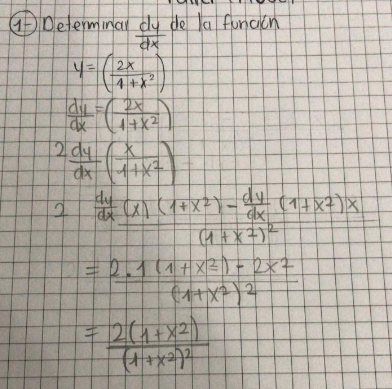 1-) Determinar dy/dx de la función
y = (2x / 1+x²)
dy/dx = (2x / 1+x²)
2 dy/dx (x / 1+x²)
2 dy/dx (x) (1+x²) - dy/dx (1+x²) x / (1+x²)²
= 2.1 (1+x²) - 2x² / (1+x²)²
= 2(1+x²) / (1+x²)²